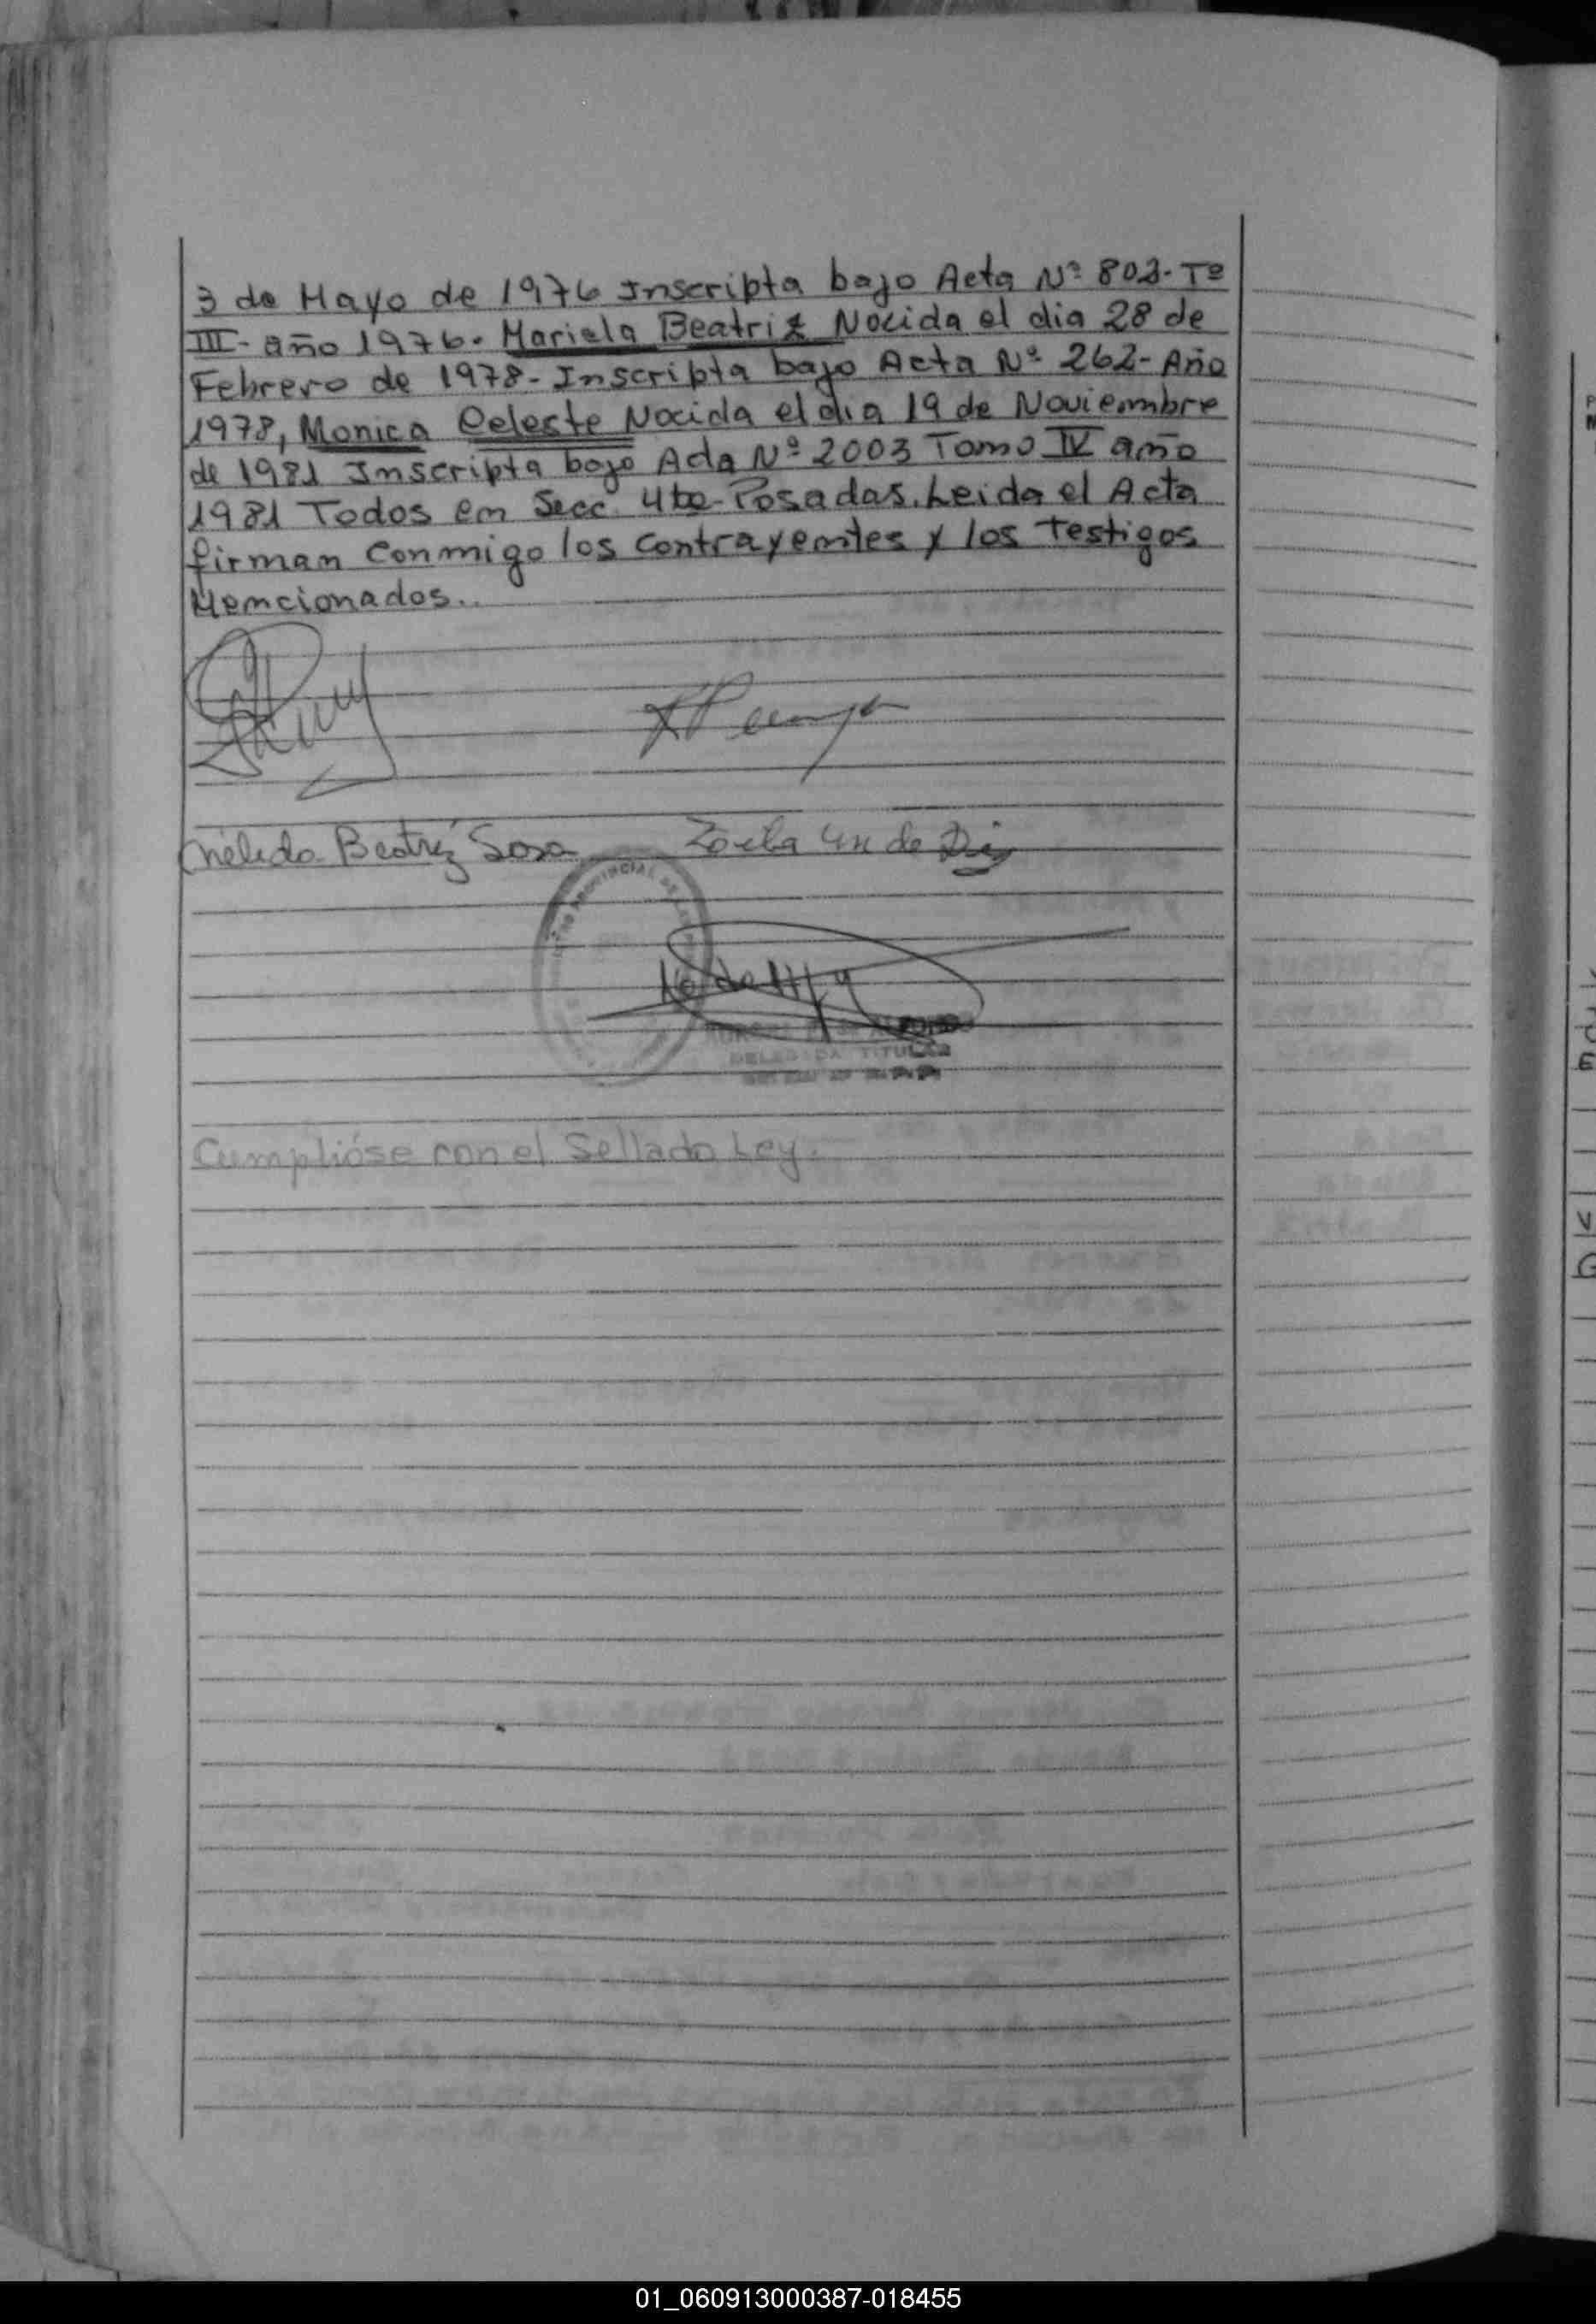 3 de Mayo de 1976 Inscripta bajo Acta Nº 803- Tº
III- año 1976. Mariela Beatriz Nocida el dia 28 de
Febrero de 1978- Inscripta bajo Acta Nº 262- Año
1978, Monica Celeste Nocida el dia 19 de Noviembre
de 1981 Inscripta bajo Acta Nº 2003 Tomo IV año
1981 Todos en Secc. 4ta- Posadas. Leida el Acta
firman conmigo los contrayentes y los testigos
Mencionados..
Nélida Beatriz Sosa Zoila
DELEGADA TITULAR
Cumplióse con el Sellado Ley.
01_060913000387-018455